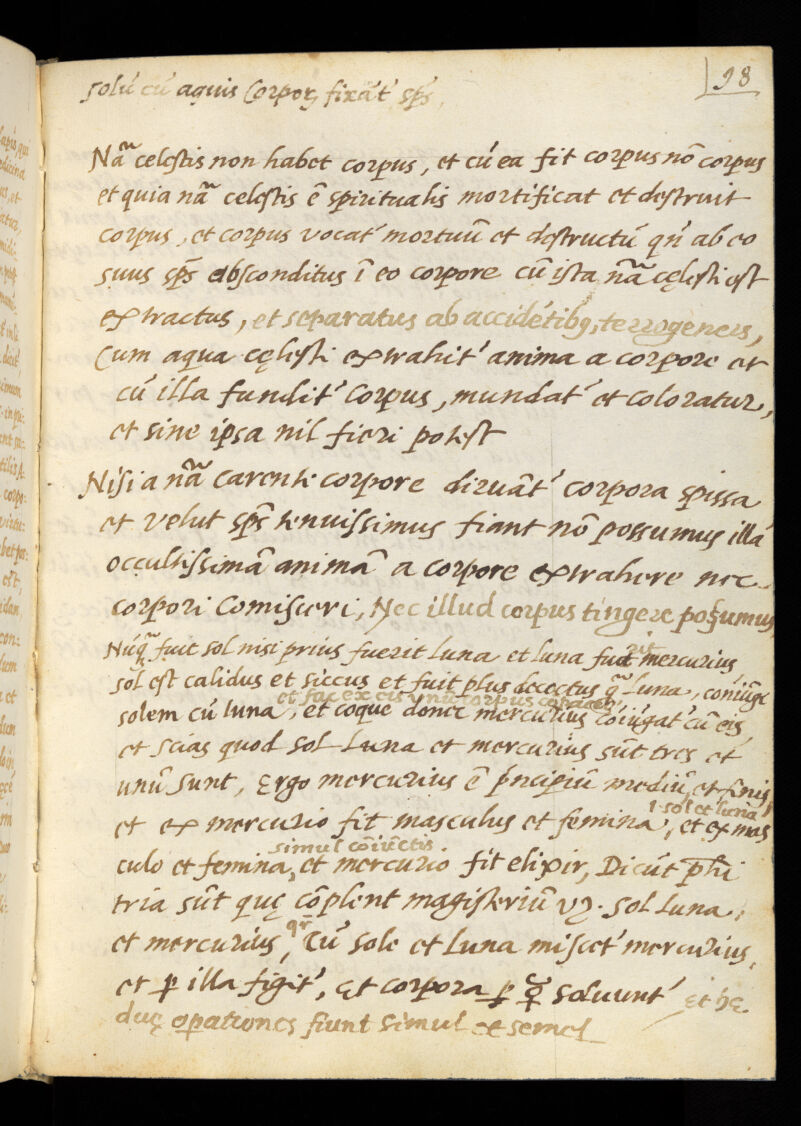 98
solū cū aquis Corporꝫ fixāt' sp̄s,
Nā̃ celestis non habet corpus, et cū ea fit corpus nō corpus
et quia nā̃ celestis ē spiritualis mortificat et destruit
corpus, et corpus vocat' mortuū et destructū qn̄ ab eo
suus sp̄s absconditus ī eo corpore cū ista nā̃ cęlesti est
extractus, et separatus ab accidētibꝫ, terrogeneis,
Cum aqua cęlesti extrahit' anima a corpore et
cū illa fundit' Corpus, mundat' et coloratur,
et sine ipsa nil fieri potest
Nisi a nā̃ Carenti corpore diruāt' corpora spissa
et velut sp̄s tenuissimus fiant nō possumus illā
occultissimā animā a corpore extrahere nec
corpori Comisceri, Nec illud corpus tingere possumus
Nūq̃ fuit sol nisi prius fuerit Luna et luna fuit mercurius
sol est calidus et siccus et fuit plus decoctus q̃ Luna, coniūge
et fac ex eis unū corpus
solem cū luna, et coque donec mercurius cōiūgat' cū eis,
et scias quod sol Luna et mercurius sūt tres et
unū sunt, Ergo mercurius ē p'ncipiū mediū et finis
.i. sol et luna
et ex mercurio fit masculus et femina, et ex mas
simul cōiūctis.
culo et femina, et mercurio fit elixir, Dicūt phī
tria sūt quę cōplent magisteriū vꝫ. Sol Luna,
et mercurius, qr̄ Cū sole et Luna miscet' mercurius,
et ꝑ illa figit', Et corpora ꝑ q̃ soluunt' Et hę
duę operationes fiunt simul et semel